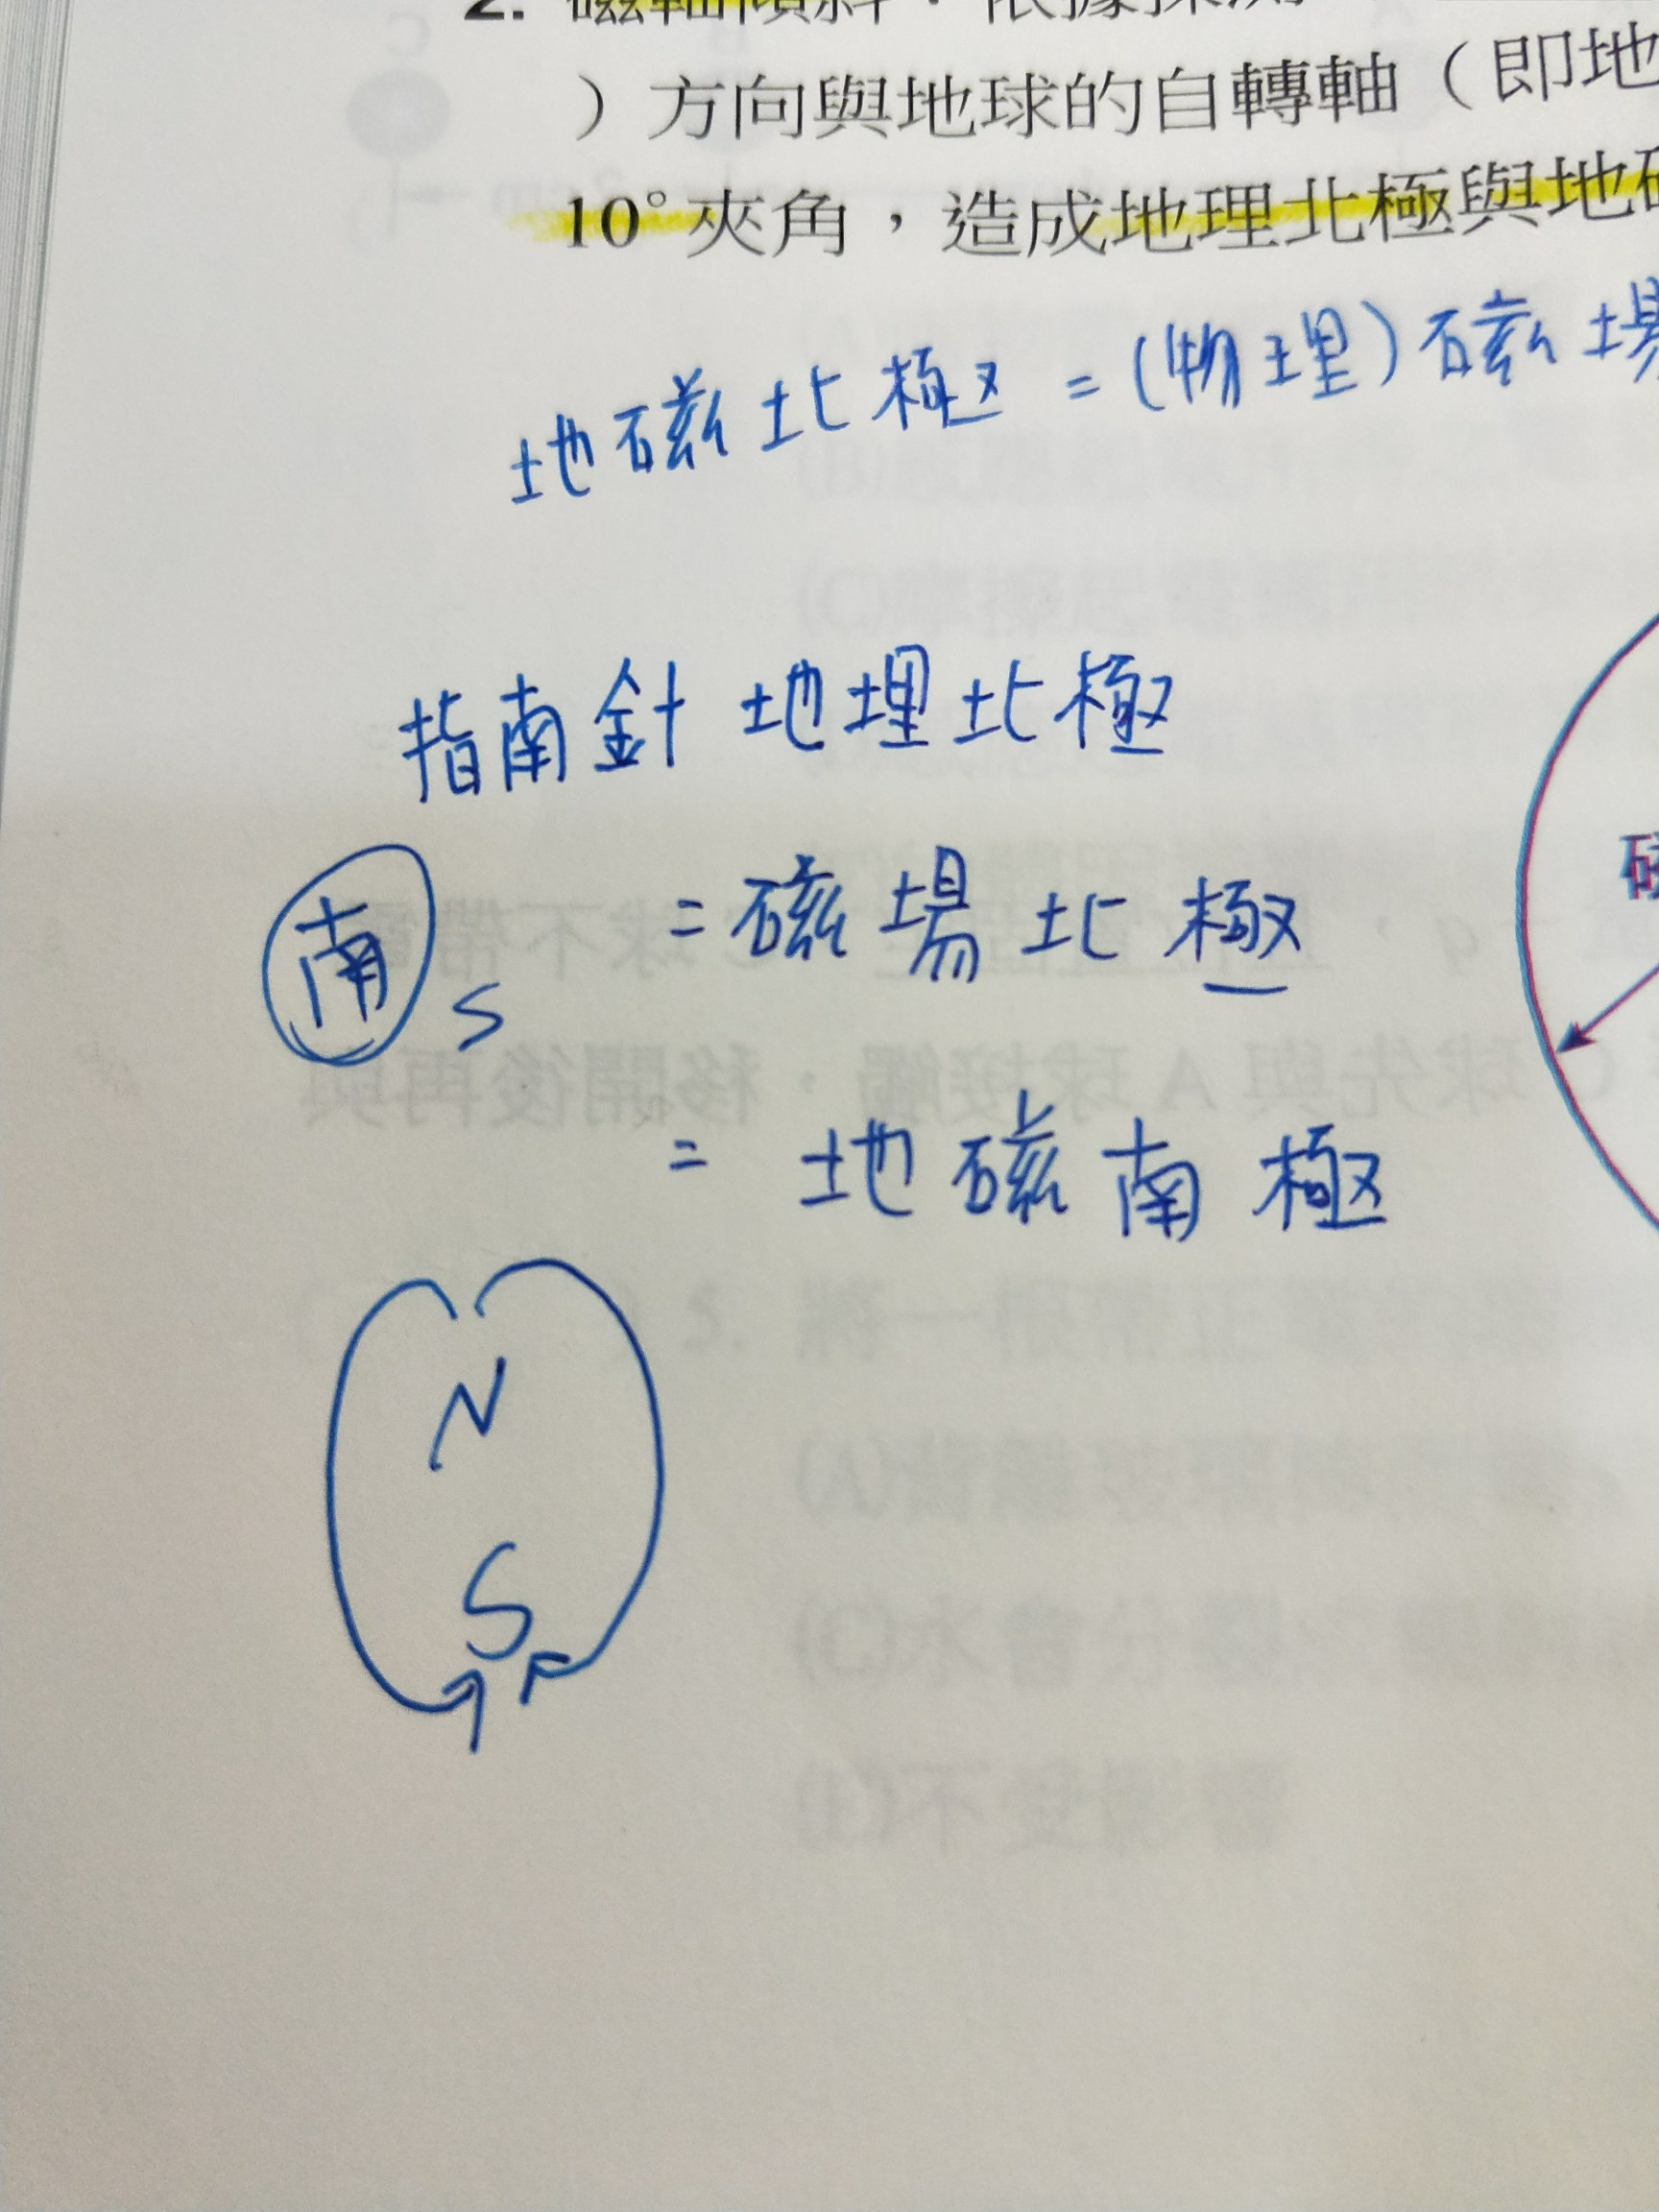 2. 磁軸傾斜：依據探測
）方向與地球的自轉軸（即地
10°夾角，造成地理北極與地磁
地磁北極 = (物理) 磁場
指南針 地理北極
南 S = 磁場北極
= 地磁南極
N
S